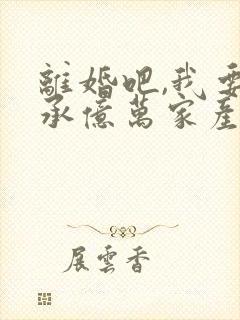 離婚吧,我要
承億萬家產
展雲香